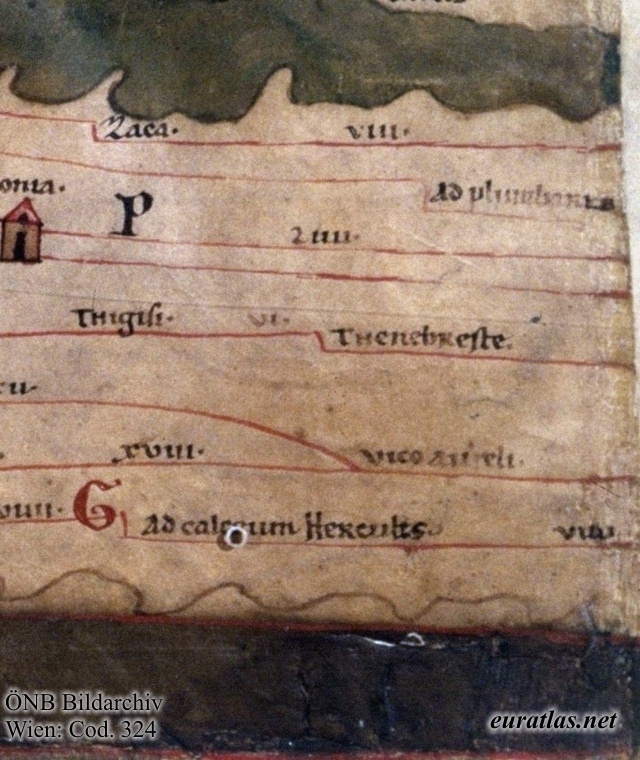 Zaca. VIII.
Ad plumbaria
onia.
P
Thigisi. VI.
Thenebreste.
cu.
XVIII. vico aureli.
G Ad calceum Herculis.
ÖNB Bildarchiv
Wien: Cod. 324
euratlas.net